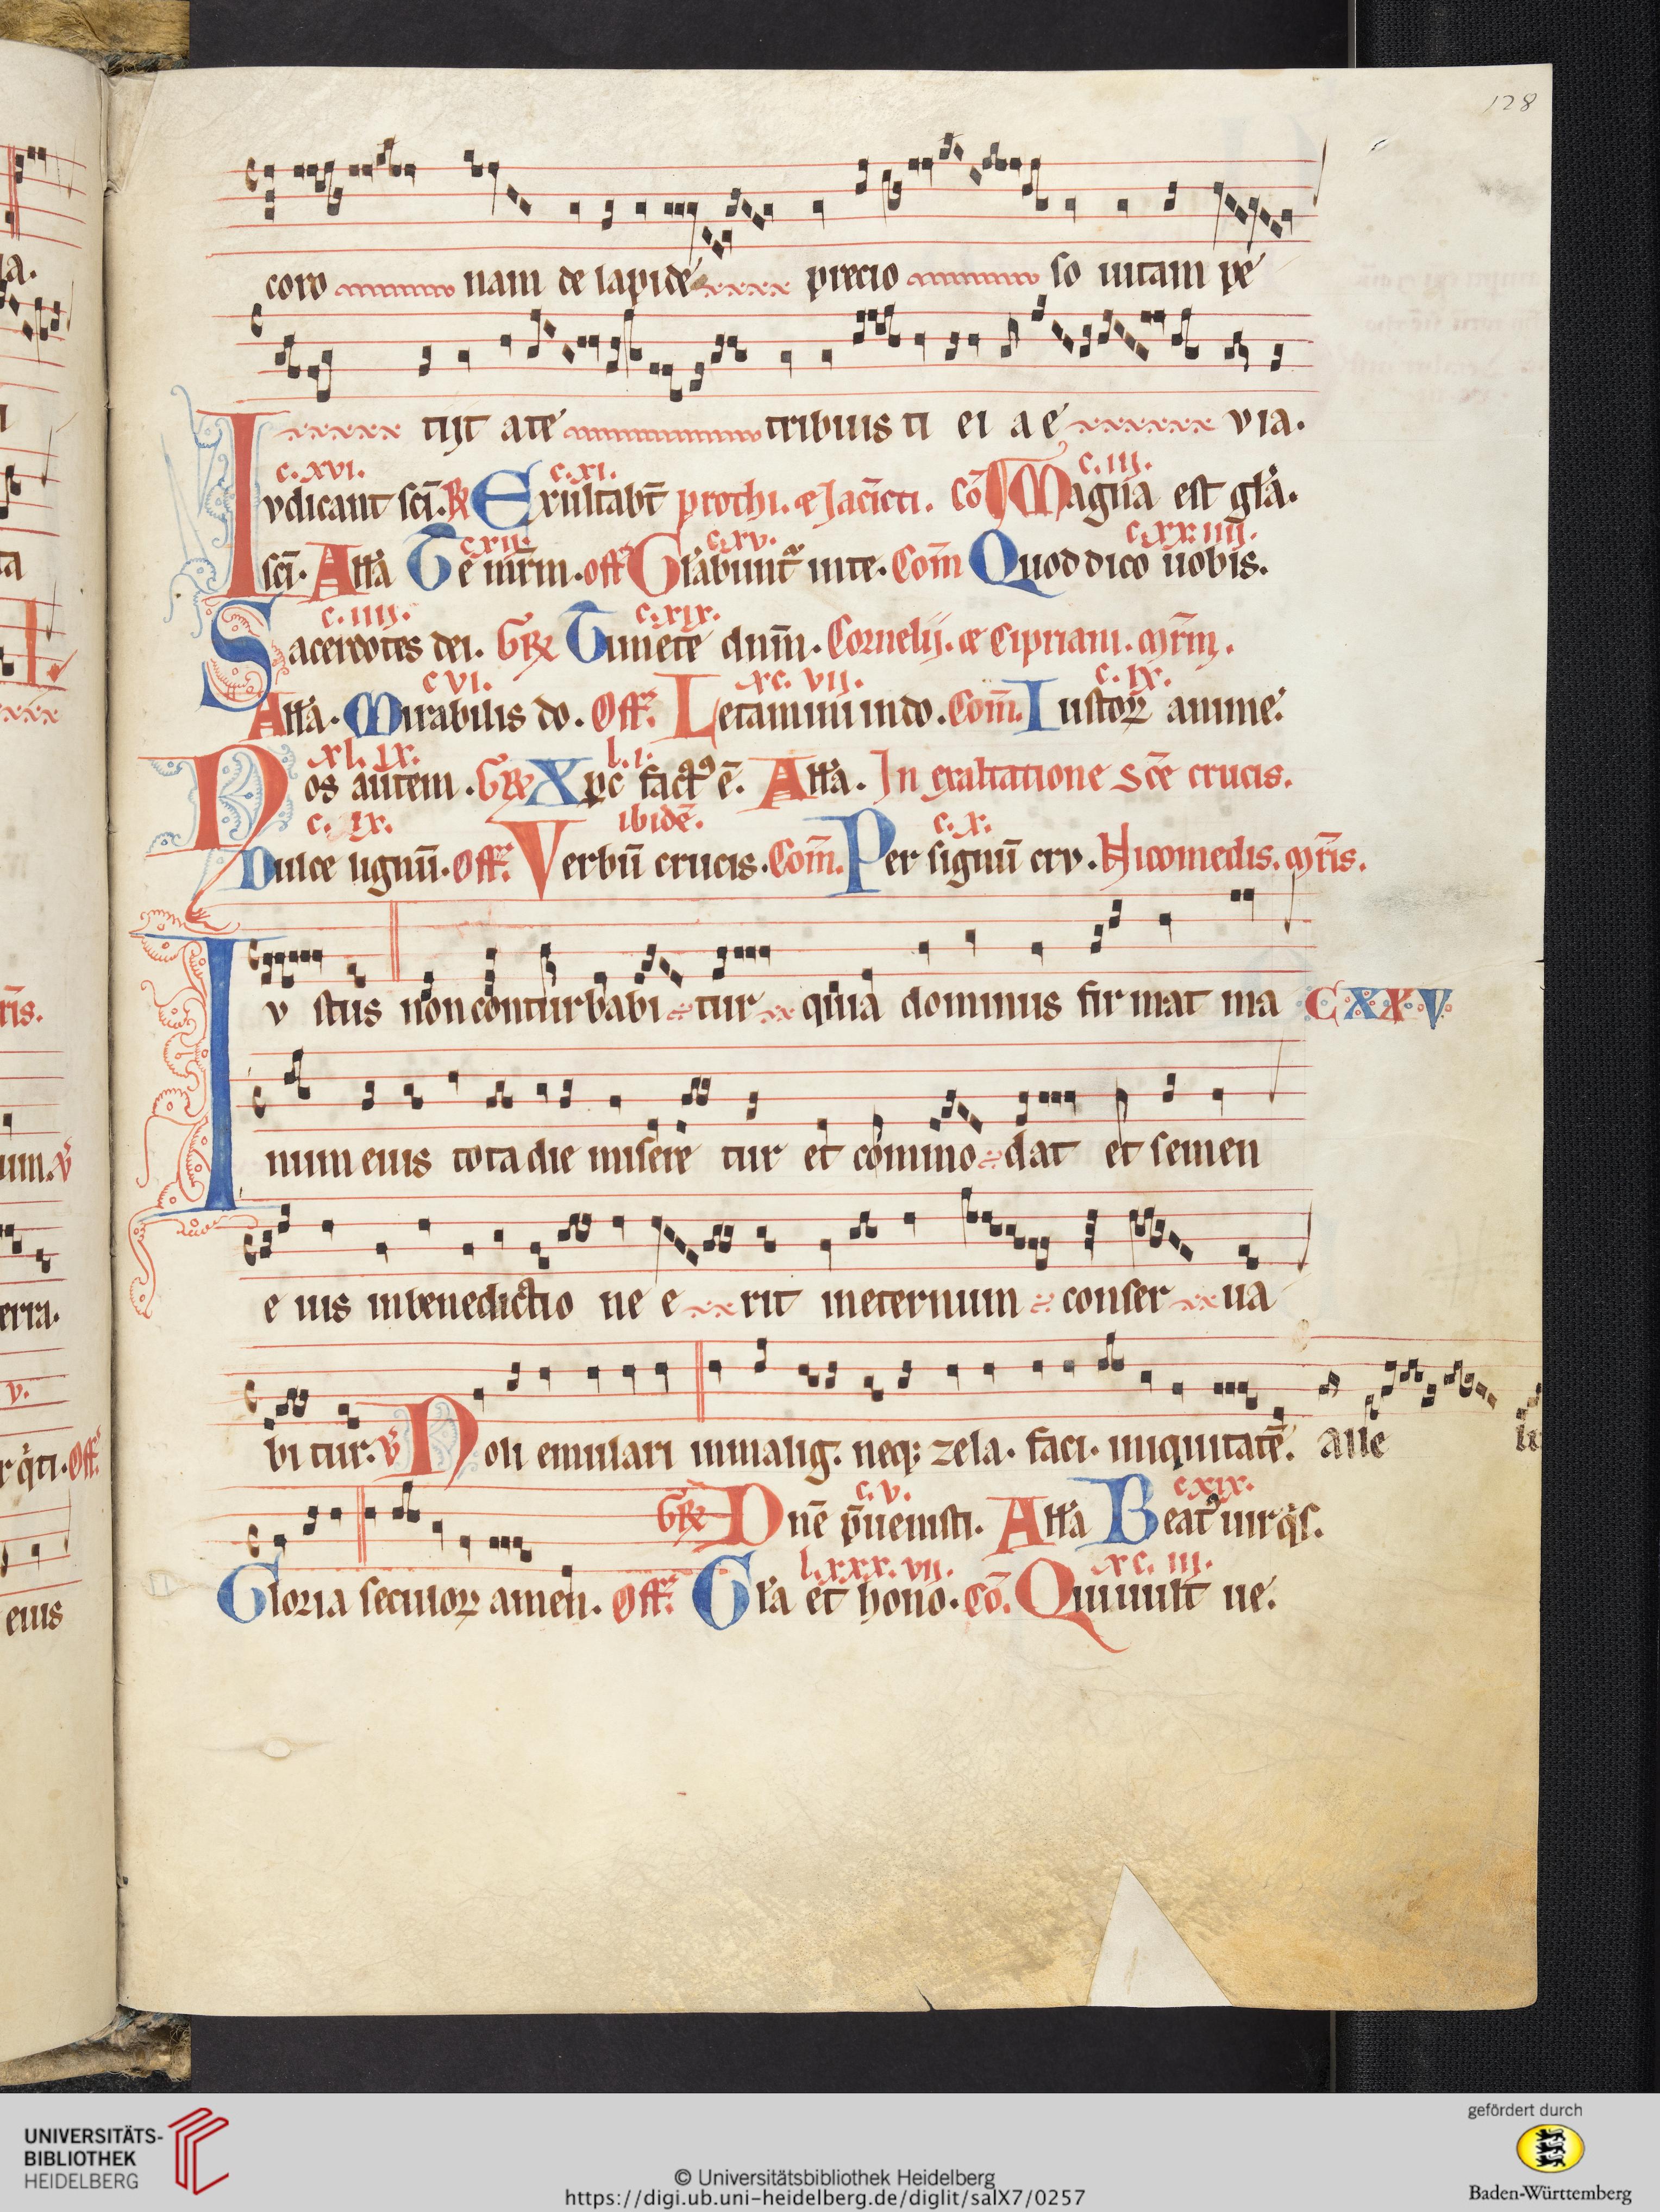 128
coro nam de lapide precio so uitam pe
tijt a te tribuis ti ei a e via.
c. xvi. c. xi. c. iii.
Ivdicant sc̄i. R̄ Exultabt̄ prothi. et Jacīcti. Cō Magna est gl̄a.
c. xii. c. xv. c. xx. iiii.
sc̄i. All̄a Te mr̄m. off̄ Gl̄abunt̄ in te. Com̄ Quod dico uobis.
c. iiii. c. xix.
Sacerdotes dei. GR̄ Timete dnm̄. Cornelij. et Cipriani. mr̄m.
c. vi. xc. vii. c. ix.
All̄a. Mirabilis do. Off̄. Letamini in do. Com̄. Iustoꝝ anime.
xl. ix. l. i.
Nos autem. GR̄ Xp̄c fact᷒ ē. All̄a. In exaltatione sc̄e crucis.
c. ix. ibidē. c. x.
Dulce lignū. Off̄. Verbū crucis. Com̄. Per signū crv. Nicomedis. mr̄is.
Iv stus non conturbabi tur quia dominus fir mat ma C XX V
num eius tota die misere tur et commo dat et semen
e ius in benedictio ne e rit in eternum conser ua
bi tur. v̄ Noli emulari in malig. neq; zela. faci. iniquitatē. alle
c. v. c. xix.
GR̄ Dn̄e p̄uenisti. All̄a Beat᷒ uir q̄ s.
l. xxx. vii. xc. iii.
Gloria seculoꝝ amen. Off̄. Gl̄a et hono. Cō. Qui uult ue.
UNIVERSITÄTS-
BIBLIOTHEK
HEIDELBERG
© Universitätsbibliothek Heidelberg
https://digi.ub.uni-heidelberg.de/diglit/salX7/0257
gefördert durch
Baden-Württemberg